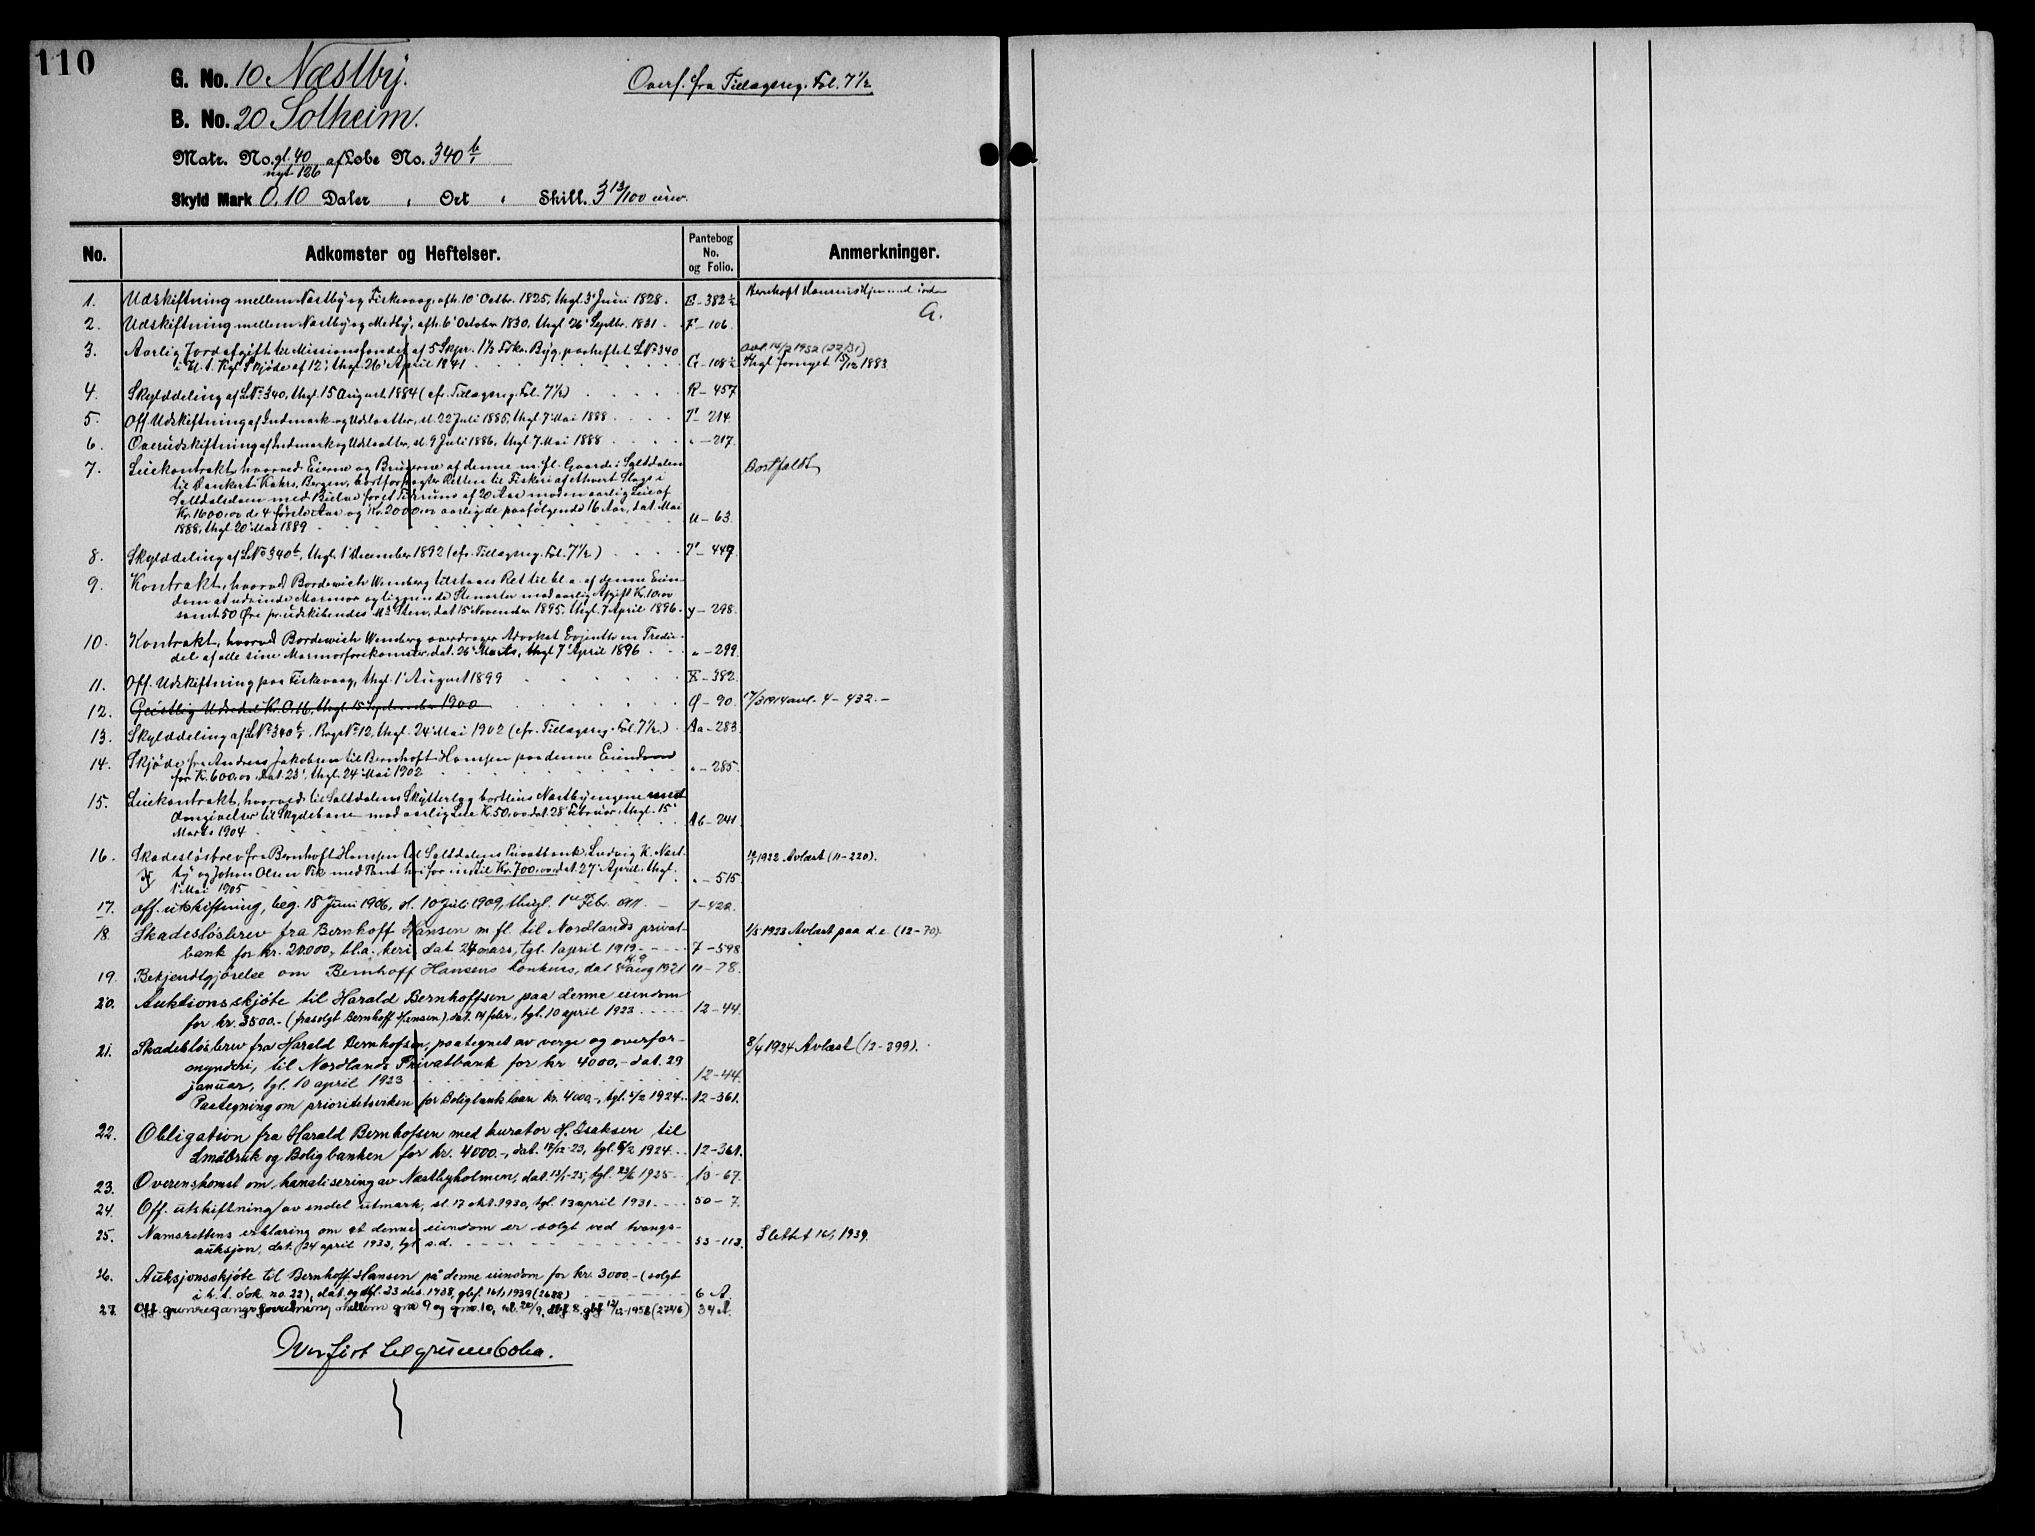 110
G. No. 10 Næstby.
Overf. fra Tillægsreg. Fol. 7½
B. No. 20 Solheim.
Matr. No. gl. 40 af Løbe No. 340 b
nyt 126
Skyld Mark 0.10 Daler " Ort " Skill. 3 13/100
No. Adkomster og Heftelser. Pantebog No. og Folio. Anmerkninger.
1. Udskiftning mellem Næstby og Fiskevaag, afh. 10 Octbr. 1825, thgl. 3 Juni 1828. E - 382½ Bernhoft Hansens
2. Udskiftning mellem Næstby og Medby, afh. 6 October 1830, thgl. 26 Septbr. 1831. F - 106. A.
3. Aarlig Jordafgift til Missionsfondet af 5 Skpr. 1½ Fdkr. Byg, paaheftet LNo 340 avl. 14/2 1952 (22/31)
Kgl. Skjøde af 12, thgl. 26 April 1841 G - 108½ thgl. fornyet 15/12 1883
4. Skylddeling af LNo 340, thgl. 15 August 1884 (cfr. Tillægsreg. Fol. 7½) R - 457
5. Off. Udskiftning af Indmark og Udslaatter, sl. 22 Juli 1885, thgl. 7 Mai 1888 T - 214
6. Overudskiftning af Indmark og Udslaatter, sl. 9 Juli 1886, thgl. 7. Mai 1888 " - 217.
7. Leiekontrakt, hvorved Eierne og Brugerne af denne m. fl. Gaarde i Saltdalen Bortfaldt
til Dankert Krohn, Bergen, bortforpagter Retten til Fiskeri af ethvert Slags i
Saltdalselven med Bielve for et Tidsrum af 20 Aar mod en aarlig Leie af
Kr. 1600,00 de 4 første Aar og Kr. 2000,00 aarlig de paafølgende 16 Aar, dat. Mai
1888, thgl. 20 Mai 1889 U - 63.
8. Skylddeling af LNo 340 b, thgl. 1 December 1892 (cfr. Tillægsreg. Fol. 7½) T - 447
9. Kontrakt, hvorved Bordewich Wenberg tilstaaes Ret til bl. a. af denne Eien-
dom at udvinde Marmor og lignende Stenarter mod aarlig Afgift Kr. 10,00
samt 50 Øre pr. udskibendes M3 Sten, dat. 15 November 1895, thgl. 7 April 1896. y - 298.
10. Kontrakt, hvorved Bordewich Wenberg overdrager Advokat Evjenth en Tredie-
del af alle sine Marmorforekomster, dat. 26 Marts, thgl. 7 April 1896 " - 299
11. Off. Udskiftning paa Fiskevaag, thgl. 1 August 1899 X - 382.
12. Geistlig Udsedel Kr. 0.16, thgl. 15 September 1900 Q - 90. 17/3 1914 avl. 4 - 432. -
13. Skylddeling af LNo 340 b, Brgs No 12, thgl. 24 Mai 1902 (cfr. Tillægsreg. Fol. 7½) Aa - 283
14. Skjøde fra Andreas Jakobsen til Bernhoft Hansen paa denne Eiendom
for Kr. 600,00, dat. 23, thgl. 24 Mai 1902 " - 285.
15. Leiekontrakt, hvorved til Saltdalens Skytterlag bortleies Næstbyengene med
Omgivelser til Skydebane mod aarlig Leie Kr. 50,00 dat. 28 Februar, thgl. 15
Marts 1904 Ab - 241
16. Skadesløsbrev fra Bernhoft Hansen til Saltdalens Privatbank, Ludvig K. Næst- 1922 Avlæst (11-220).
by og Johan Olsen Vik med Pant heri for indtil Kr. 700,00, dat. 27 April, thgl.
1 Mai 1905 " - 515
17. Off. utskiftning, beg. 18 Juni 1906, sl. 10 Juli 1909, thgl. 1 Febr. 1911. 1 - 422.
18. Skadesløsbrev fra Bernhoff Hansen m. fl. til Nordlands privat- 1/5 1923 Avlæst paa d.e. (12-70).
bank for kr. 20.000, bl. a. heri dat 24 mars, tgl. 1 april 1919. 7 - 598
19. Bekjendtgjørelse om Bernhoff Hansens konkurs, dat aug 1921 11 - 78.
20. Auktionsskjøte til Harald Bernhoffsen paa denne eiendom
for kr. 3500.- (frasolgt Bernhoff Hansen), dat. 14 febr., tgl. 10 april 1923 12 - 44.
21. Skadesløsbrev fra Harald Bernhofsen, paategnet av verge og overfor- 8/4 1924 Avlæst (12-399).
mynderi, til Nordlands Privatbank for kr 4000,- dat. 29
januar, tgl. 10 april 1923 12 - 44.
Paategning om prioritetsviken for Boligbanklaan kr. 4000,-, tgl. 5/2 1924. 12 - 361.
22. Obligation fra Harald Bernhofsen med kurator H. Isaksen til
Småbruk og Boligbanken for kr. 4000.-, dat. 18/12-23, tgl. 5/2 1924. 12 - 361.
23. Overenskomst om kanalisering av Næstbyholmen, dat. 13/1-25, tgl. 23/6 1925 13 - 67.
24. Off. utskiftning av endel utmark, sl. 17 okt. 1930, tgl. 13 april 1931. 50 - 7.
25. Namsrettens erklæring om at denne eiendom er solgt ved tvangs-
auksjon, dat. 24 april 1933, tgl s.d. 53 - 113. Slettet 16/1 1939.
26. Auksjonsskjøte til Bernhoff Hansen på denne eiendom for kr. 3000,- (solgt
i h. t. dok no. 22), dat. og dbf. 23 des. 1938, gbf. 16/1 1939 (2688) 6 A.
27. Off. grensegangsforretning mellem gnr 9 og gnr. 10, sl. 20/9, dbf 8, gbf 12/12 1958 (2746) 34 A.
Overført til grunnboka.